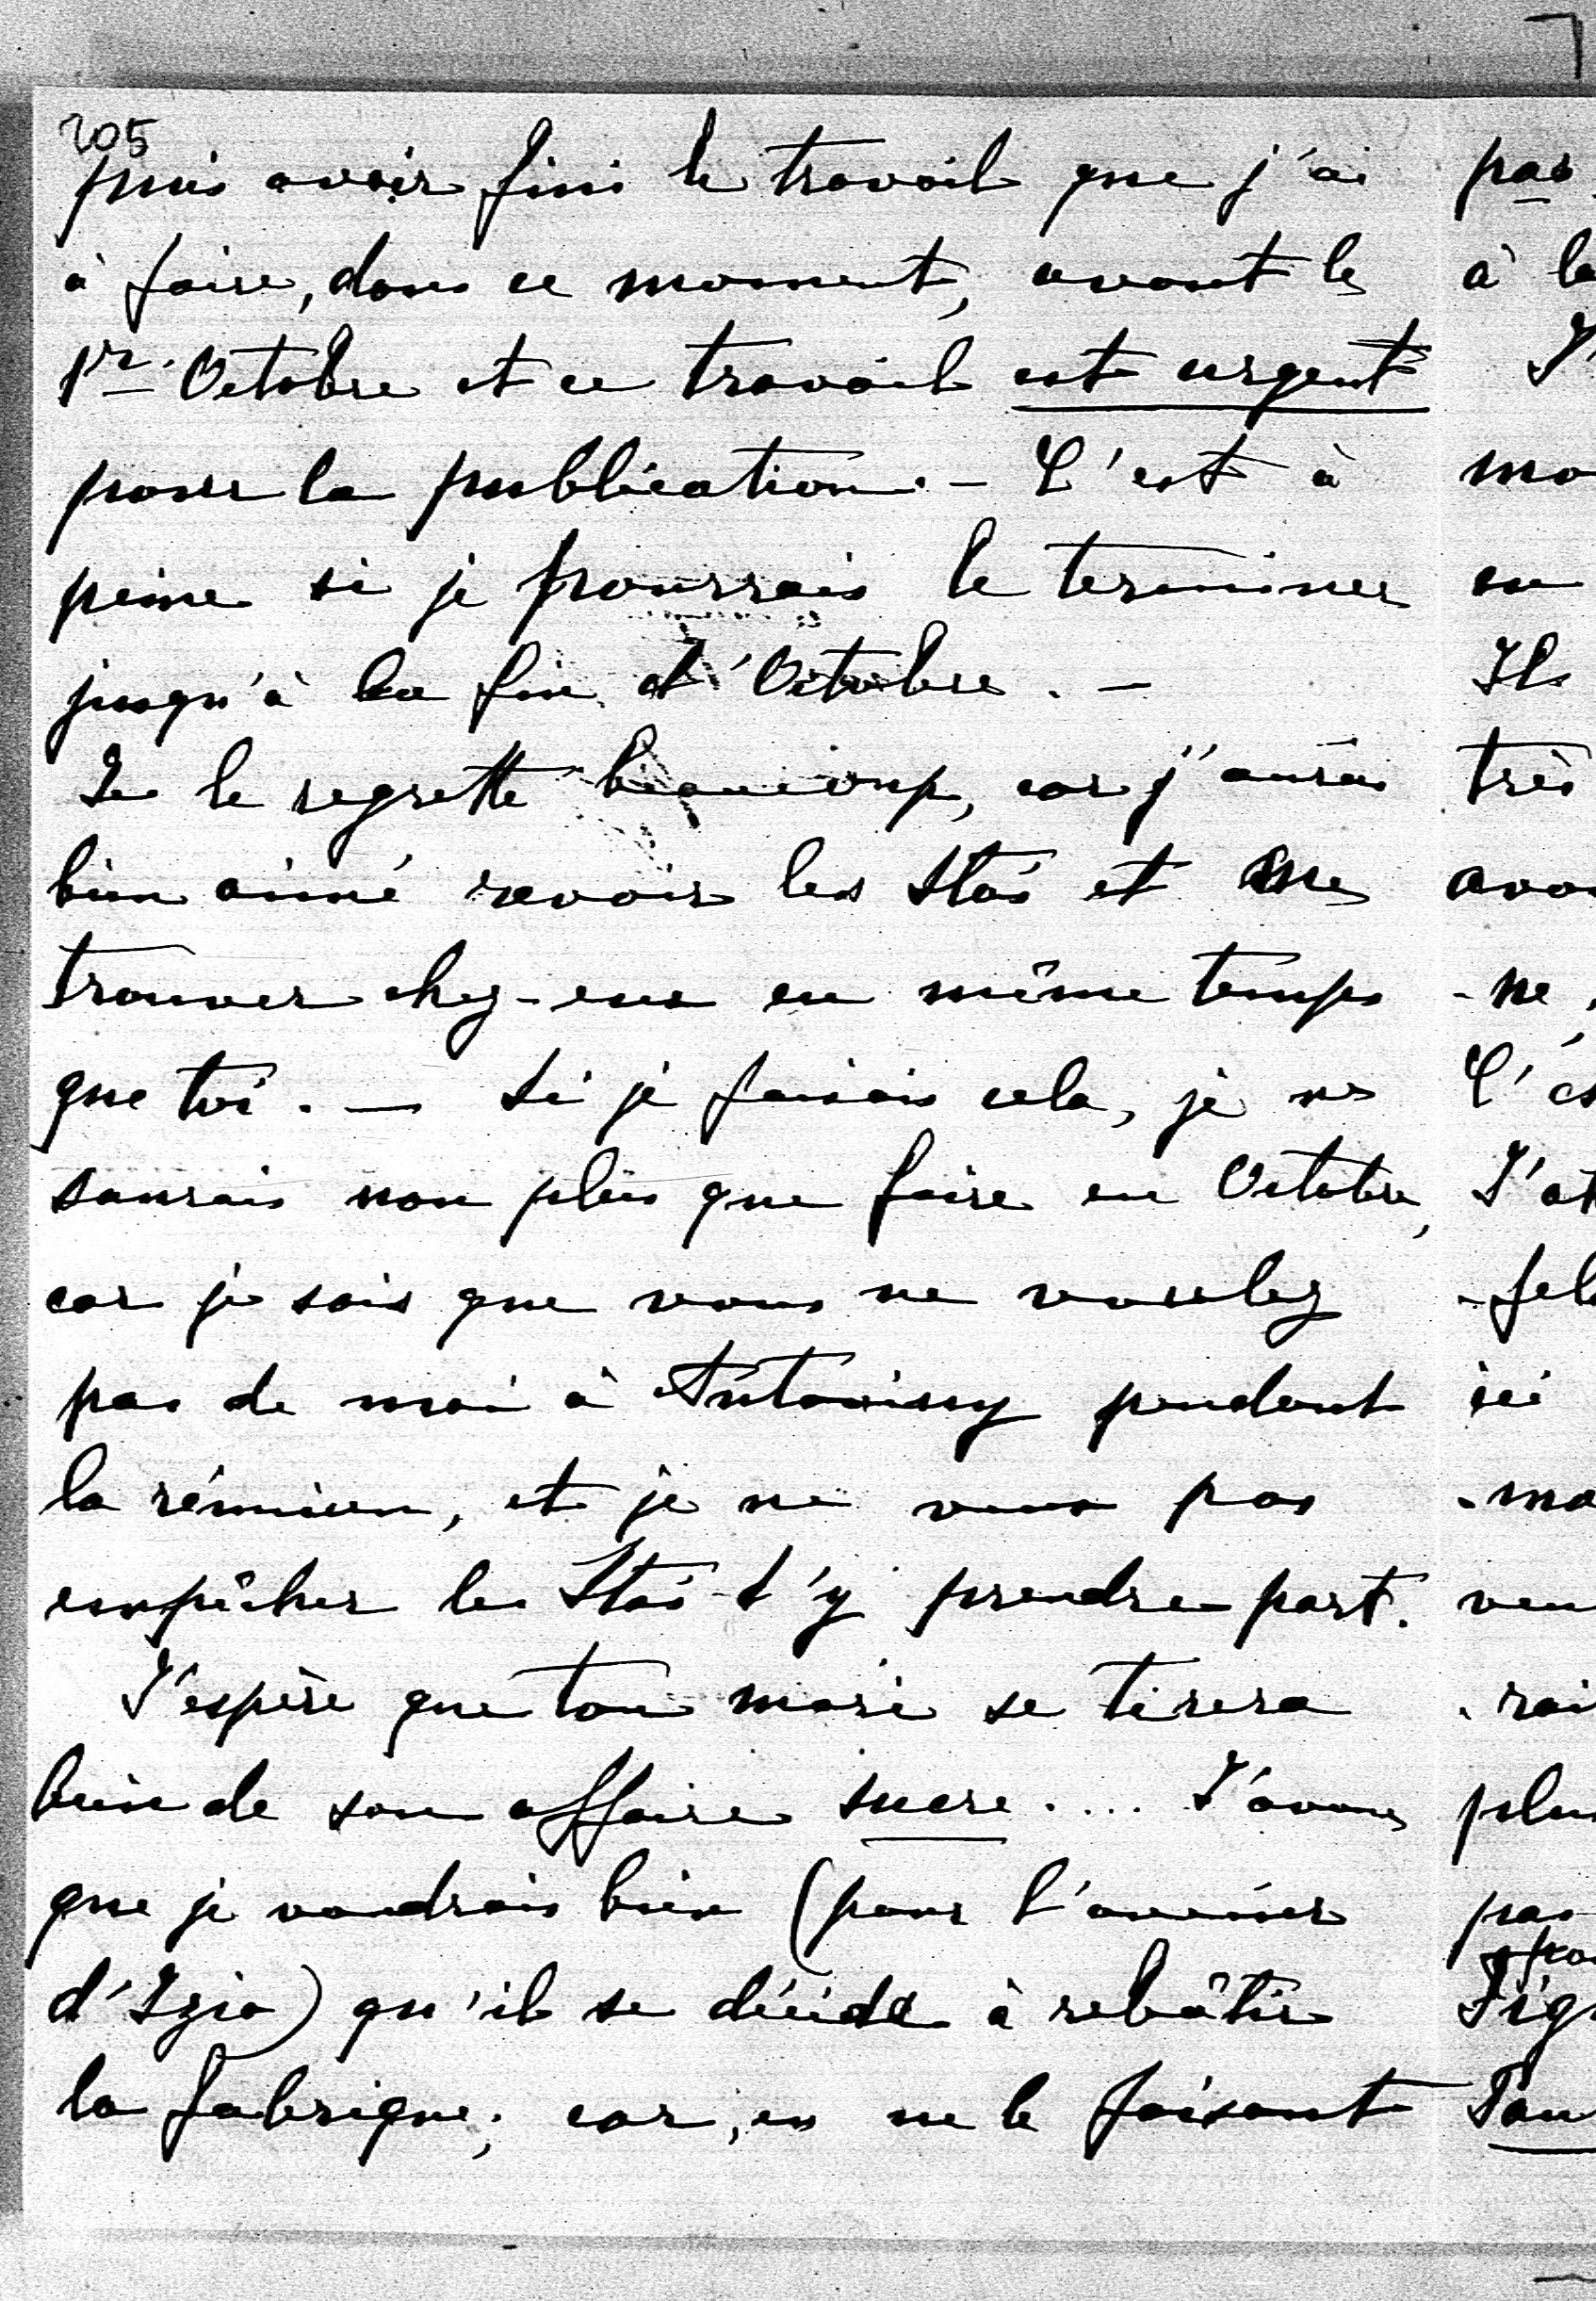 205
puis avoir fini le travail que j'ai
à faire, dans ce moment, avant le
1er Octobre et ce travail est urgent
pour la publication. - C'est à
peine si je pourrais le terminer
jusqu'à la fin d'Octobre. -
Je le regrette beaucoup, car j'aurais
bien aimé revoir les Stás et me
trouver chez-eux en même temps
que toi. - Si je faisais cela, je ne
saurais non plus que faire en Octobre,
car je sais que vous ne voulez
pas de moi à Antoniny pendant
la réunion, et je ne veux pas
empêcher les Stás d'y prendre part.
J'espère que ton mari se tirera
bien de son affaire sucre.... J'avoue
que je voudrais bien (pour l'avenir
d'Izia) qu'il se décide à rebâtir
la fabrique; car, en ne le faisant
pas
à la
mo
en
Ils
très
avo
-ne,
C'es
J'at
-fel
ici
-ma
ven
-rai
plu
pas